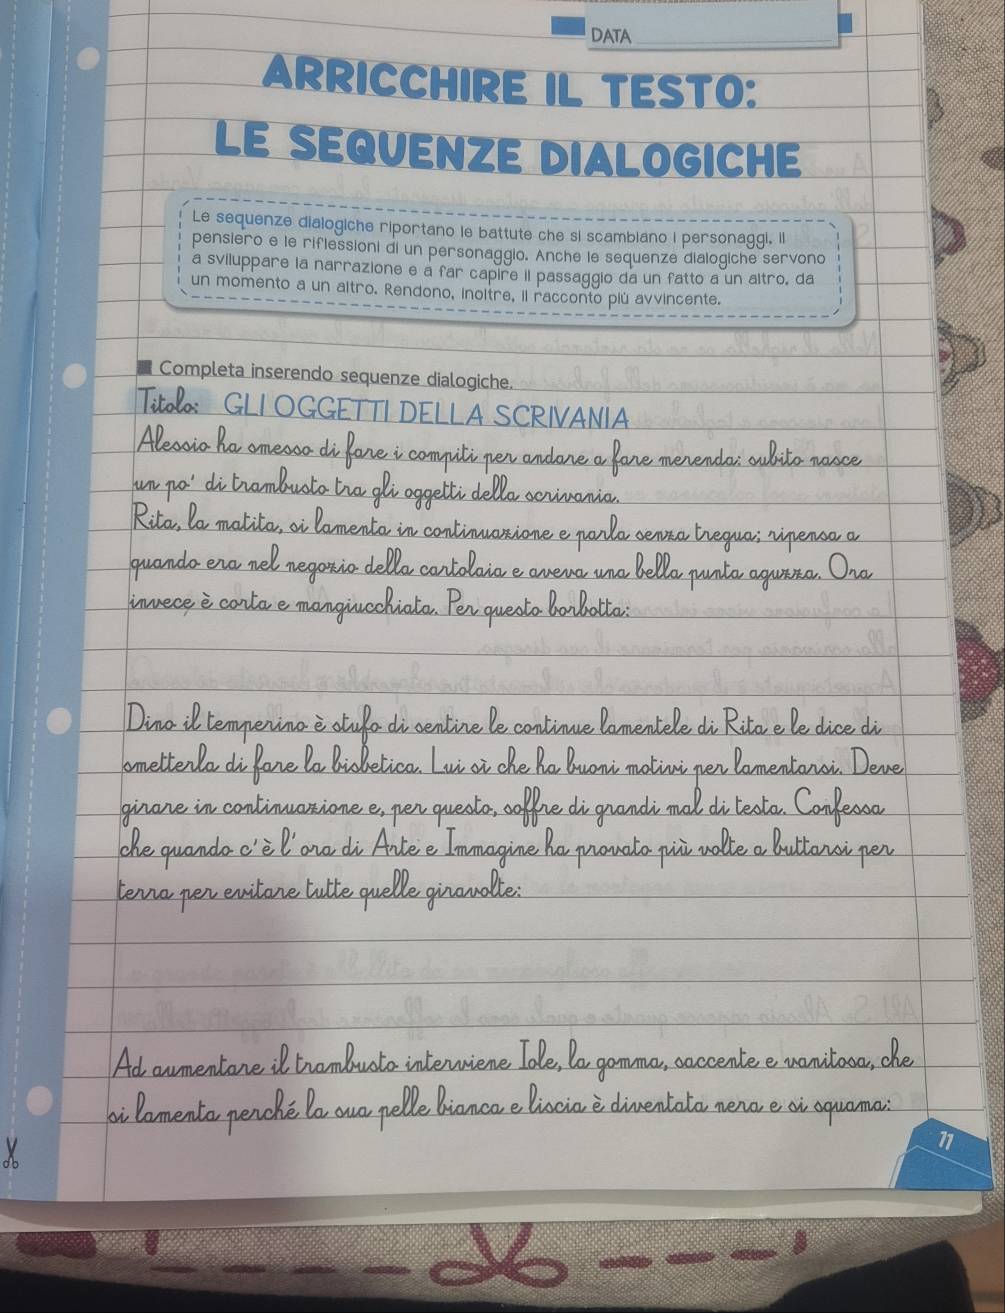 DATA
ARRICCHIRE IL TESTO:
LE SEQUENZE DIALOGICHE
Le sequenze dialogiche riportano le battute che si scambiano i personaggi, il
pensiero e le riflessioni di un personaggio. Anche le sequenze dialogiche servono
a sviluppare la narrazione e a far capire il passaggio da un fatto a un altro, da
un momento a un altro. Rendono, inoltre, il racconto più avvincente.
Completa inserendo sequenze dialogiche.
Titolo: GLI OGGETTI DELLA SCRIVANIA
Alessio ha omesso di fare i compiti per andare a fare merenda: subito nasce
un po' di trambusto tra gli oggetti della scrivania.
Rita, la matita, si lamenta in continuazione e parla senza tregua; ripensa a
quando era nel negozio della cartolaia e aveva una bella punta aguzza. Ora
invece è corta e mangiucchiata. Per questo borbotta:
Dino il temperino è stufo di sentire le continue lamentele di Rita e le dice di
smetterla di fare la bisbetica. Lui sì che ha buoni motivi per lamentarsi. Deve
girare in continuazione e, per questo, soffre di grandi mal di testa. Confessa
che quando c'è l'ora di Arte e Immagine ha provato più volte a buttarsi per
terra per evitare tutte quelle giravolte:
Ad aumentare il trambusto interviene Iole, la gomma, saccente e vanitosa, che
si lamenta perché la sua pelle bianca e liscia è diventata nera e si squama:
11